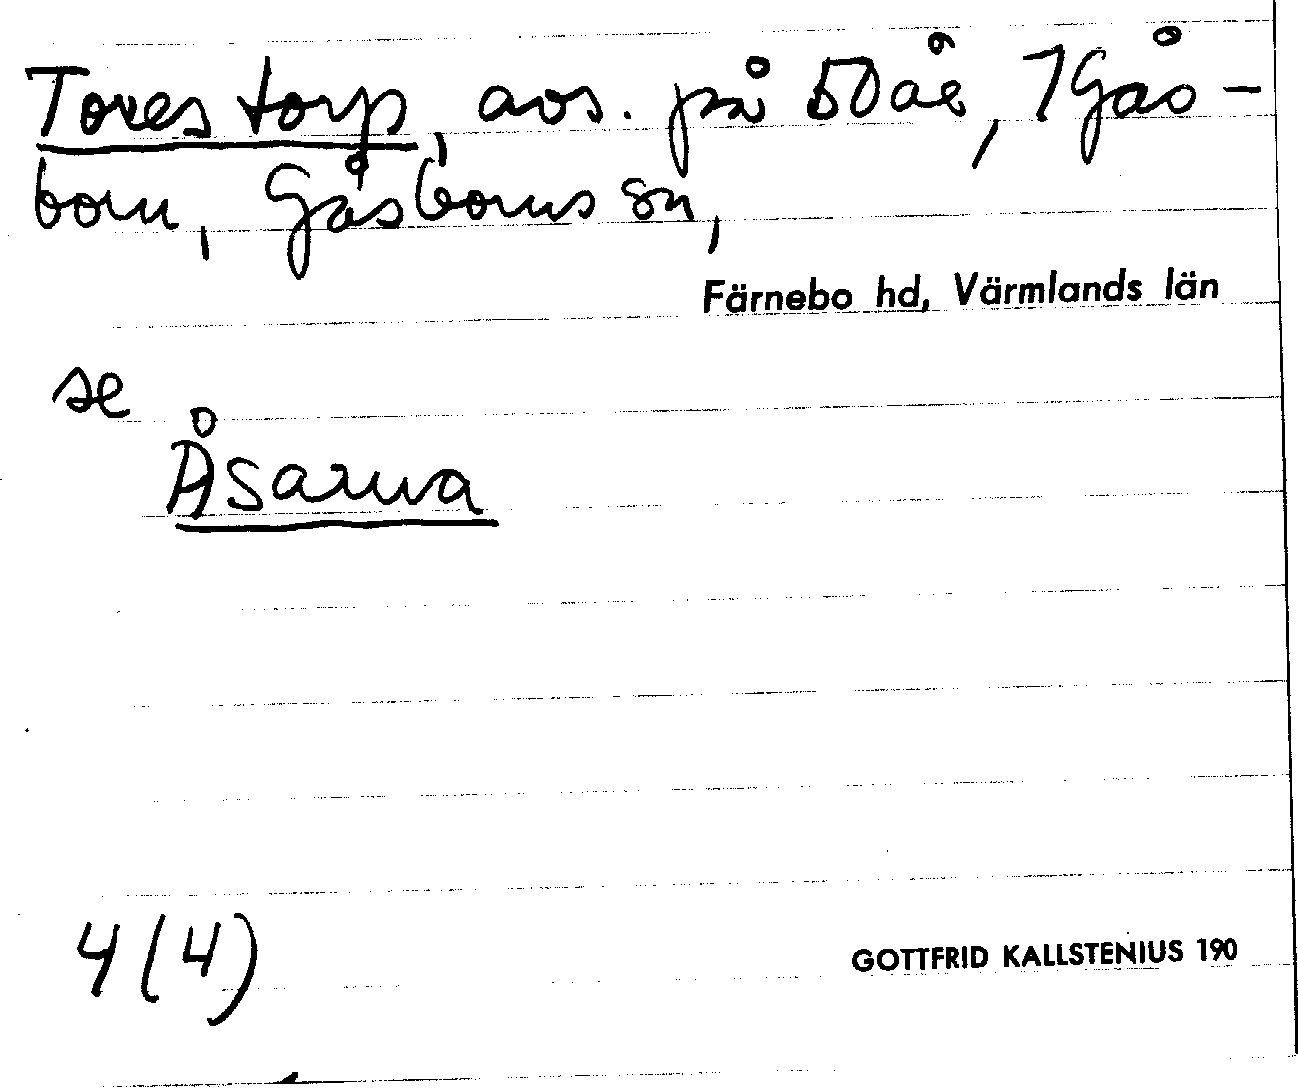 Tores torp, avs. på 50 aå, 7 Gås-
born, Gåsborns sn,
Färnebo hd, Värmlands län
se
Åsarna
4 (4)
GOTTFRID KALLSTENIUS 190